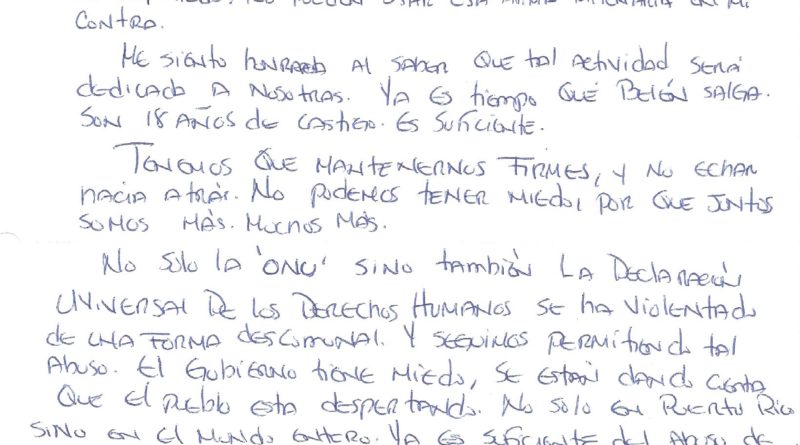 contra.
Me siento honrada al saber que tal actividad será
dedicada a nosotras. Ya es tiempo que Belén salga.
Son 18 años de castigo. Es suficiente.
Tenemos que mantenernos firmes, y no echar
hacia atrás. No podemos tener miedo, por que juntos
somos más. Muchos más.
No solo la 'ONU' sino también la Declaración
Universal de los Derechos Humanos se ha violentado
de una forma descomunal. Y seguimos permitiendo tal
abuso. El Gobierno tiene miedo, se están dando cuenta
que el pueblo esta despertando. No solo en Puerto Rico
sino en el mundo entero. Ya es suficiente del abuso de